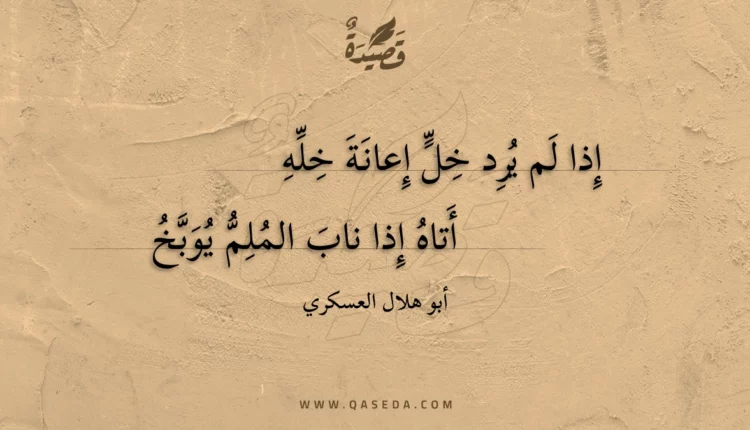 قَصِيدَةٌ
إِذا لَم يُرِد خِلٍّ إِعانَةَ خِلِّهِ
أَتاهُ إِذا نابَ المُلِمُّ يُوَبَّخُ
أبو هلال العسكري
WWW.QASEDA.COM